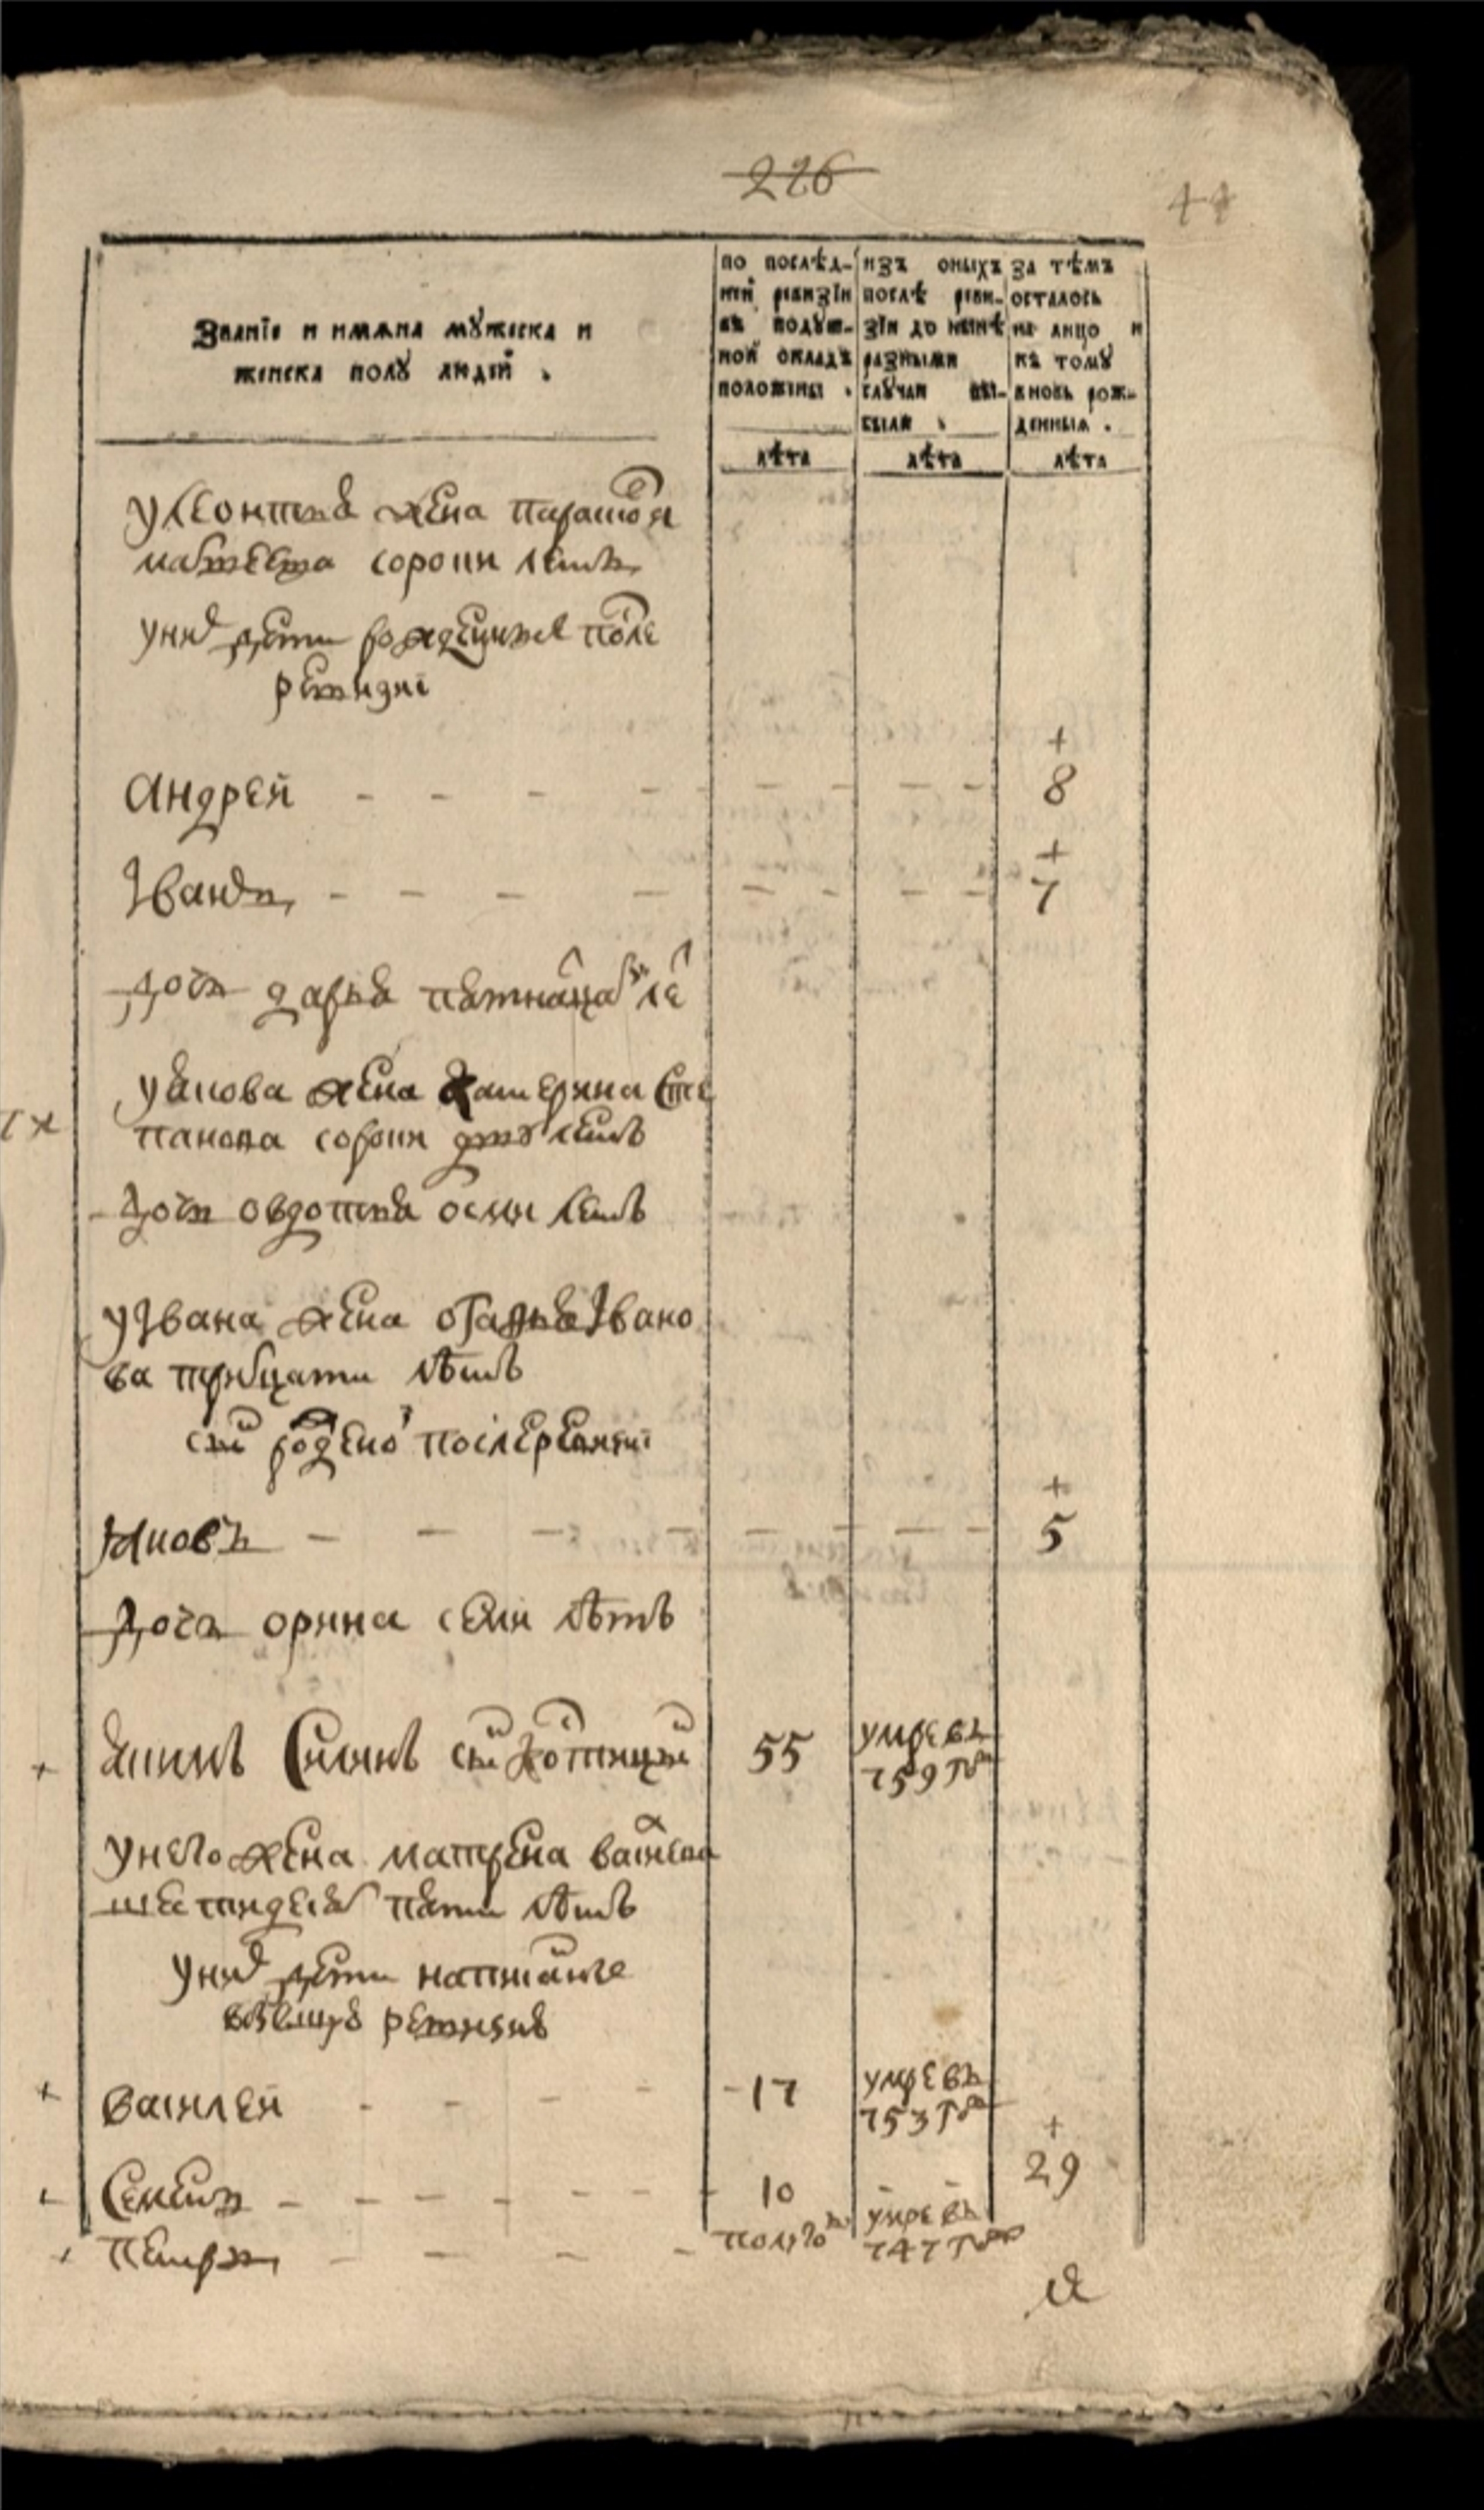 226
44
Званїе и имяна мꙋжеска и
женска полꙋ людей .
по послѣд-
ней ревизїи
въ подꙋш-
ной окладъ
положены .
изъ оныхъ
послѣ реви-
зїи до нынѣ
разными
слꙋчаи вы-
были .
за тѣмъ
осталось
на лицо и
къ томꙋ
вновь рож-
денныя .
лѣта
лѣта
лѣта
улеонтья жена парасковя
матвеева сорони летъ
унихъ дети рожденные после
ревизиі
Андрей 8
Іванъ 7
дочь дарья пятнатцать летъ
уякова жена катерина сте
панова сорони дву летъ
дочь овдотья осми летъ
уІвана жена Івано
ва тритцати лѣтъ
сынъ рожденой послеревизиі
яковъ 5
дочь орина семи лѣтъ
якимъ сынъ 55 умре въ
759 году
унего жена матрена васильева
шестидесятъ пяти лѣтъ
унихъ дети написаные
ревизию
василей 17 умре въ
753 году
семенъ 10 29
петръ полуго умре въ
747 году